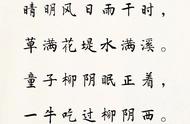 晴明风日雨干时，
草满花堤水满溪。
童子柳阴眠正着，
一牛吃过柳阴西。